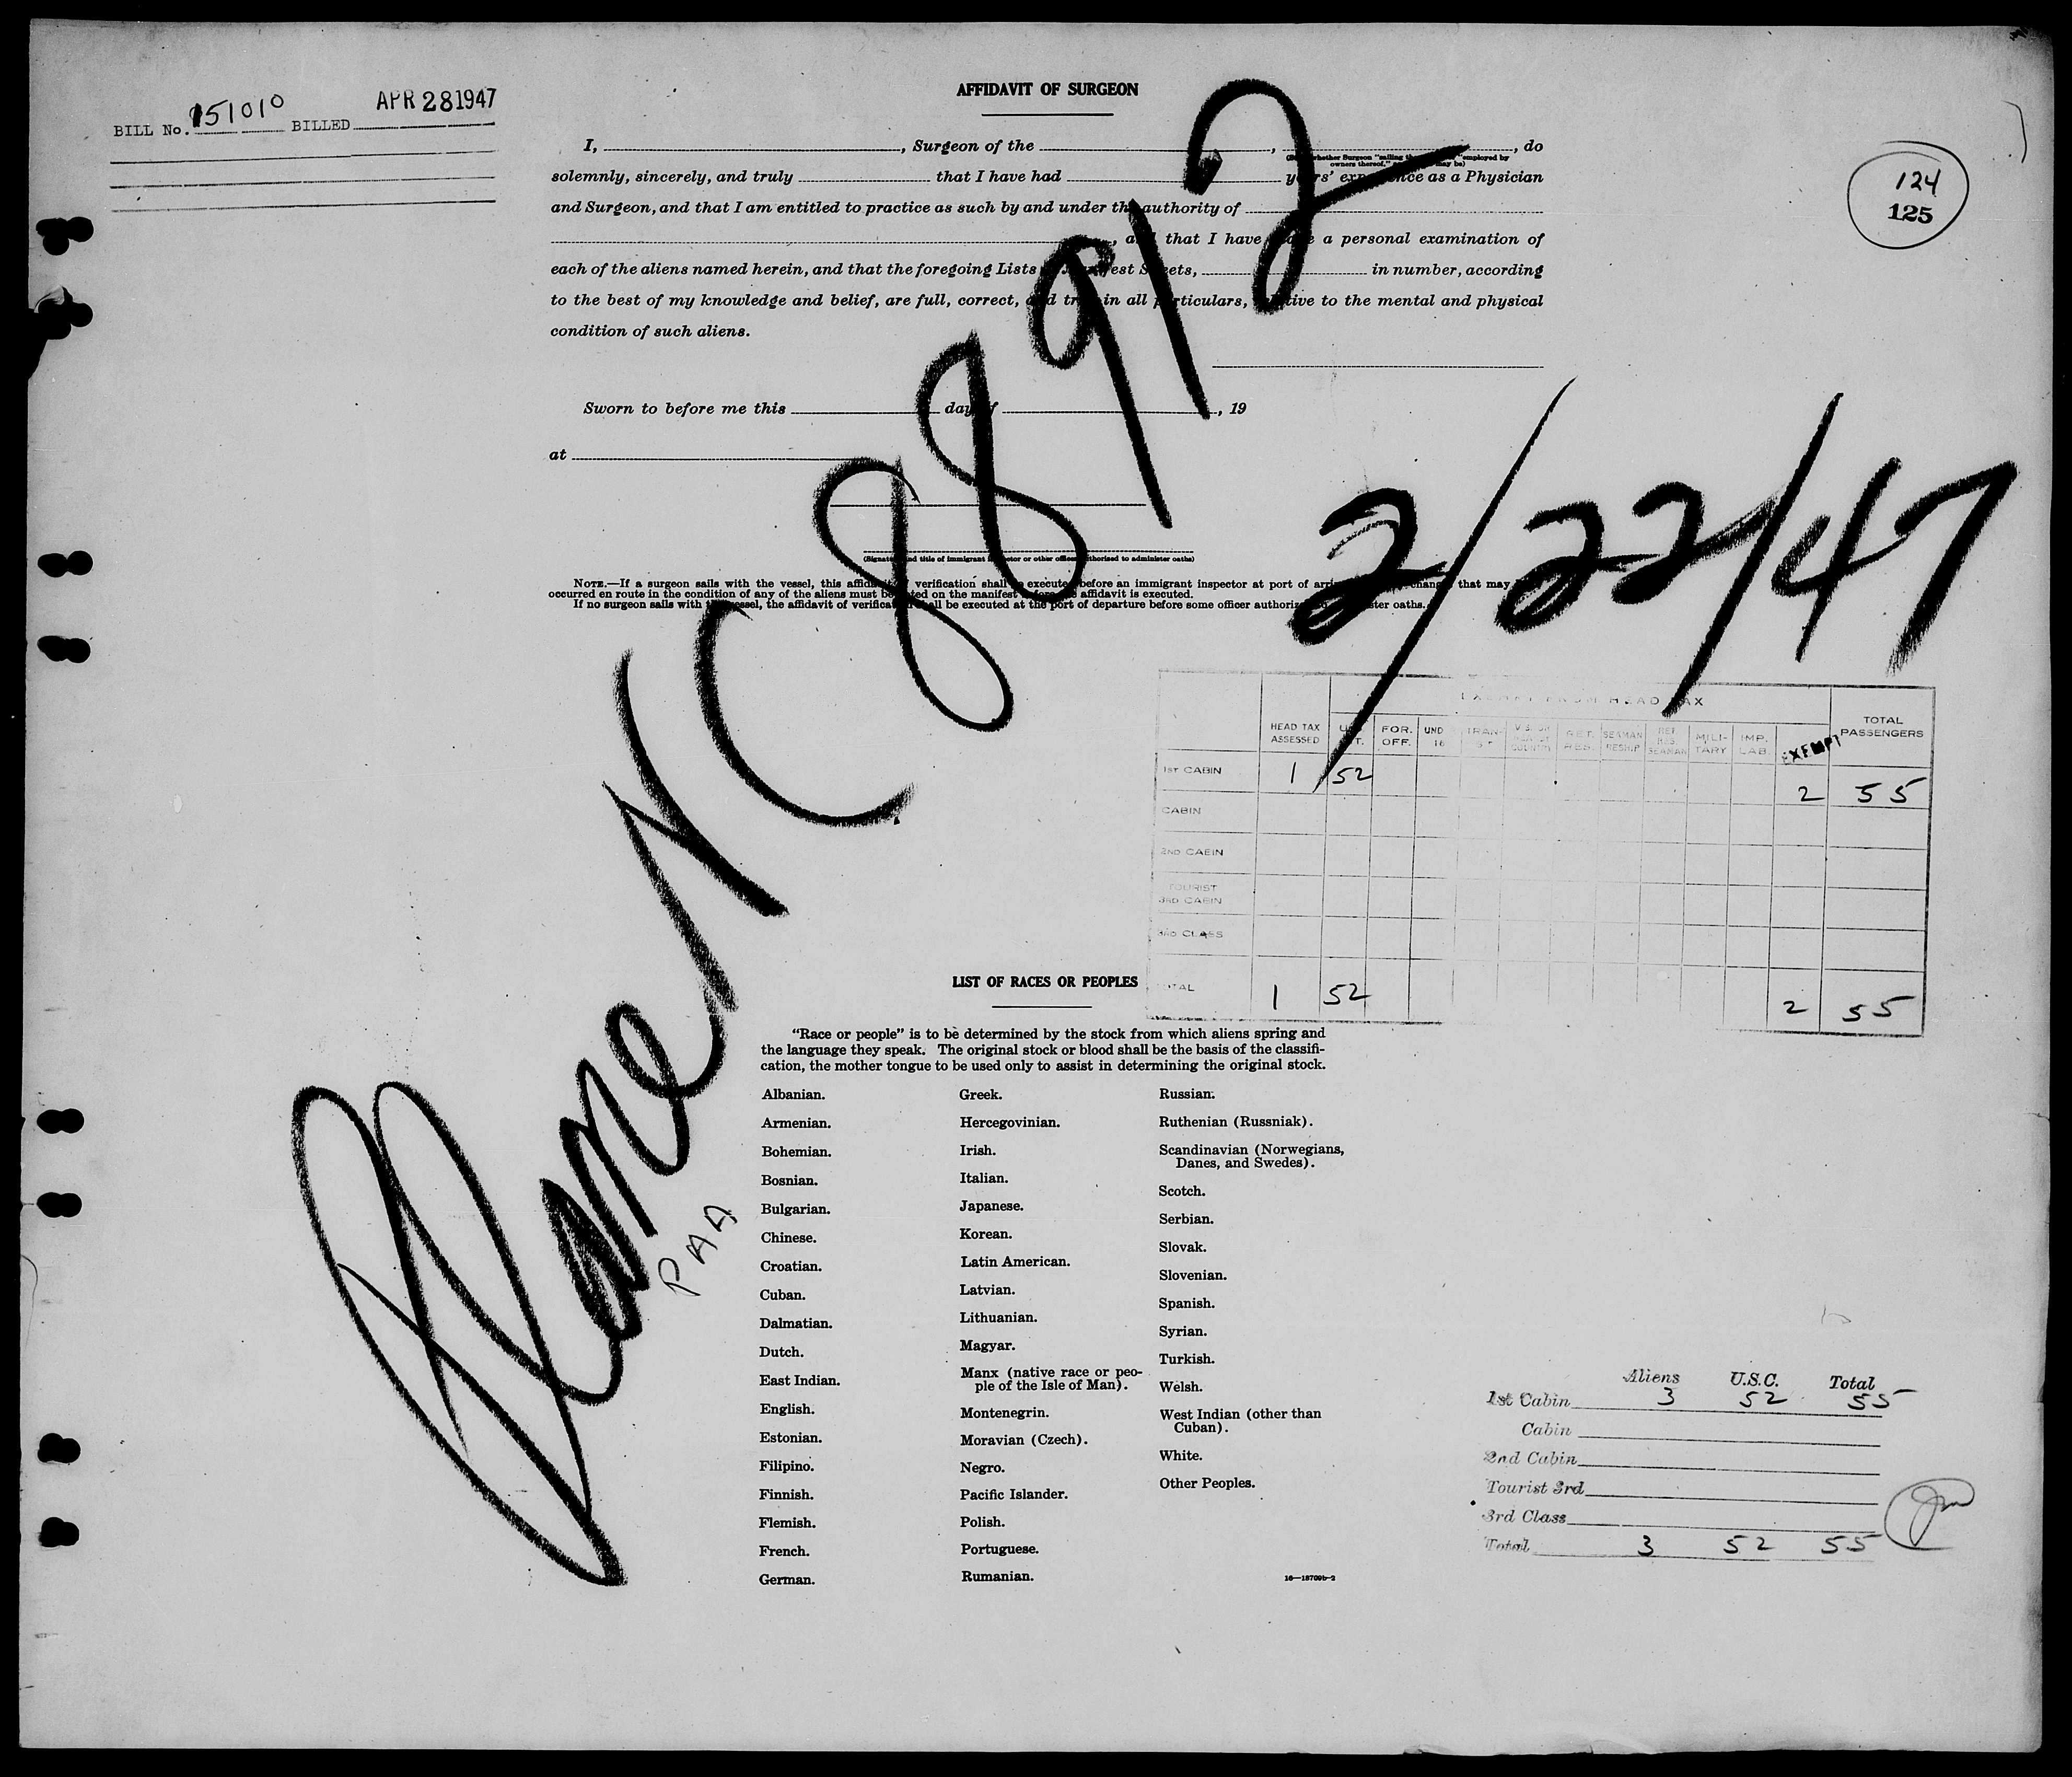 BILL No. 151010 BILLED APR 28 1947
124
125
AFFIDAVIT OF SURGEON
I, , Surgeon of the , , do
solemnly, sincerely, and truly that I have had years' experience as a Physician
and Surgeon, and that I am entitled to practice as such by and under the authority of
, and that I have made a personal examination of
each of the aliens named herein, and that the foregoing Lists or Manifest Sheets, in number, according
to the best of my knowledge and belief, are full, correct, and true in all particulars, relative to the mental and physical
condition of such aliens.
Sworn to before me this day of , 19
at
(Signature and title of immigrant inspector or other officer authorized to administer oaths)
NOTE.—If a surgeon sails with the vessel, this affidavit of verification shall be executed before an immigrant inspector at port of arrival that may
occurred en route in the condition of any of the aliens must be noted on the manifest before the affidavit is executed.
If no surgeon sails with the vessel, the affidavit of verification shall be executed at the port of departure before some officer authorized to administer oaths.
Plane NC 88912
2/22/47
PAA
EXEMPT FROM HEAD TAX
HEAD TAX ASSESSED FOR. OFF. UND 16 TRAN-SIT RET. RES. SEAMAN RESHIP RET. RES. SEAMAN MILI-TARY IMP. LAB. EXEMPT TOTAL PASSENGERS
1ST CABIN 1 52 2 55
CABIN
2ND CABIN
TOURIST 3RD CABIN
3RD CLASS
TOTAL 1 52 2 55
LIST OF RACES OR PEOPLES
"Race or people" is to be determined by the stock from which aliens spring and
the language they speak. The original stock or blood shall be the basis of the classifi-
cation, the mother tongue to be used only to assist in determining the original stock.
Albanian.
Armenian.
Bohemian.
Bosnian.
Bulgarian.
Chinese.
Croatian.
Cuban.
Dalmatian.
Dutch.
East Indian.
English.
Estonian.
Filipino.
Finnish.
Flemish.
French.
German.
Greek.
Hercegovinian.
Irish.
Italian.
Japanese.
Korean.
Latin American.
Latvian.
Lithuanian.
Magyar.
Manx (native race or peo-
ple of the Isle of Man).
Montenegrin.
Moravian (Czech).
Negro.
Pacific Islander.
Polish.
Portuguese.
Rumanian.
Russian.
Ruthenian (Russniak).
Scandinavian (Norwegians,
Danes, and Swedes).
Scotch.
Serbian.
Slovak.
Slovenian.
Spanish.
Syrian.
Turkish.
Welsh.
West Indian (other than
Cuban).
White.
Other Peoples.
16—18709b-2
Aliens U.S.C. Total
1st Cabin 3 52 55
Cabin
2nd Cabin
Tourist 3rd
3rd Class
Total 3 52 55